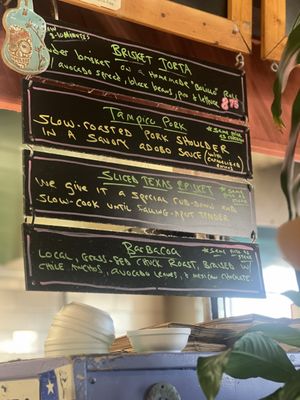 BRISKET TORTA
brisket on a homemade "Bolillo" Roll
avocado spread, black beans, pico & lettuce 8.75
TAMPICO PORK
SLOW-ROASTED PORK SHOULDER
IN A SAVORY ADOBO SAUCE (with
SLICED TEXAS BRISKET
We give it a special rub-down and
slow-cook until falling-apart tender
BARBACOA
LOCAL, GRASS-FED CHUCK ROAST, BRAISED W/
CHILE ANCHOS, AVOCADO LEAVES, & MEXICAN CHOCOLATE